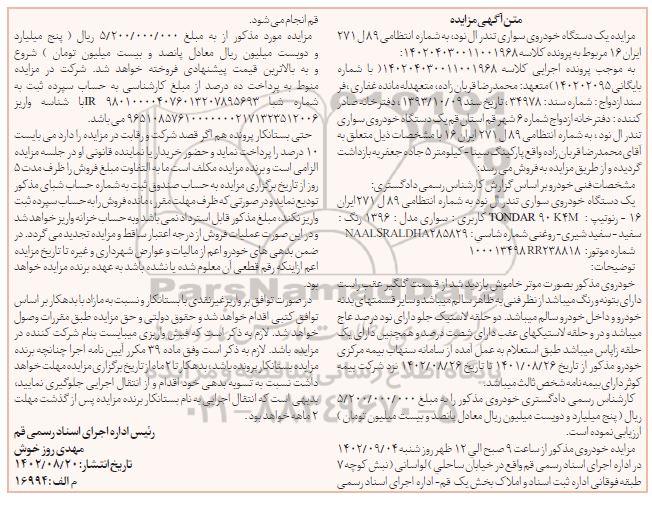 متن آگهی مزایده
مزایده یک دستگاه خودروی سواری تندر ال نود، به شماره انتظامی ۸۹ ل ۲۷۱
ایران ۱۶ مربوط به پرونده کلاسه ۱۴۰۲۰۴۰۳۰۰۱۱۰۰۱۹۶۸:
به موجب پرونده اجرایی کلاسه ۱۴۰۲۰۴۰۳۰۰۱۱۰۰۱۹۶۸( با شماره
بایگانی ۱۴۰۲۰۲۰۹۵) متعهد: محمدرضا قربان زاده، متعهدله مائده غفاری ،فر
سند ازدواج : شماره سند : ۳۴۹۷۸، تاریخ سند ۱۳۹۳/۱۰/۰۹، دفترخانه صادر
کننده : دفترخانه ازدواج شماره ۶ شهر قم استان قم یک دستگاه خودروی سواری
تندر ال نود ، به شماره انتظامی ۸۹ ل ۲۷۱ ایران ۱۶ با مشخصات ذیل متعلق به
آقای محمدرضا قربان زاده واقع پارکینگ سینا - کیلومتر ۵ جاده جعفریه بازداشت
گردیده و از طریق مزایده به فروش می رسد:
مشخصات فنی خودرو بر اساس گزارش کارشناس رسمی دادگستری:
یک دستگاه خودروی سواری تندر ال نود به شماره انتظامی ۸۹ ل ۲۷۱ ایران
۱۶ - رنوتیپ : TONDAR ۹۰ K۴M کاربری : سواری مدل : ۱۳۹۶ رنگ :
سفید - سفید شیری - روغنی شماره شاسی: NAALSRALDHA۲۸۵۸۲۹
شماره موتور: ۱۰۰۰۱۳۴۹۸RR۲۳۸۸۱۸
توضیحات:
خودروی مذکور بصورت موتر خاموش بازدید شد از قسمت گلگیر عقب راست
دارای بتونه و رنگ میباشد از نظر فنی به ظاهر سالم میباشد و سایر قسمتهای بدنه
خودرو و داخل خودرو سالم میباشد. دو حلقه لاستیک جلو دارای نود درصد عاج
میباشد و در و حلقه لاستیکهای عقب دارای شصت درصد و همچنین دارای یک
حلقه زاپاس میباشد طبق استعلام به عمل آمده از سامانه سنهاب بیمه مرکزی
خودرو مذکور از تاریخ ۱۴۰۱/۰۸/۲۶ تا تاریخ ۱۴۰۲/۰۸/۲۶ نود شرکت بیمه
کوثر دارای بیمه نامه شخص ثالث میباشد:
کارشناس رسمی دادگستری خودروی مذکور را به مبلغ ۵/۲۰۰/۰۰۰/۰۰۰
ریال ( پنج میلیارد و دویست میلیون ریال معادل پانصد و بیست میلیون تومان )
ارزیابی نموده است.
مزایده خودروی مذکور از ساعت ۹ صبح الی ۱۲ ظهر روز شنبه ۱۴۰۲/۰۹/۰۴
در اداره اجرای اسناد رسمی قم واقع در خیابان ساحلی (لواسانی (نبش کوچه ۷
طبقه فوقانی اداره ثبت اسناد و املاک بخش یک قم- اداره اجرای اسناد رسمی
قم انجام می شود.
مزایده مورد مذکور از به مبلغ ۵/۲۰۰/۰۰۰/۰۰۰ ریال ( پنج میلیارد
و دویست میلیون ریال معادل پانصد و بیست میلیون تومان ) شروع
و به بالاترین قیمت پیشنهادی فروخته خواهد شد. شرکت در مزایده
منوط به پرداخت ده درصد از مبلغ کارشناسی به حساب سپرده ثبت به
شماره شبا IR۹۸۰۱۰۰۰۰۴۰۷۶۰۱۳۲۰۷۸۹۵۶۹۳با شناسه واریز
۹۶۵۱۰۸۵۷۶۱۰۰۰۰۰۰۰۲۱۷۱۳۲۳۵۱۲۰۰۶ می باشد.
حتی بستانکار پرونده هم اگر قصد شرکت و رقابت در مزایده را دارد می بایست
۱۰ درصد را پرداخت نماید و حضور خریدار یا نماینده قانونی او در جلسه مزایده
الزامی است و برنده مزایده مکلف است ما به التفاوت مبلغ فروش را ظرف مدت ۵
روز از تاریخ برگزاری مزایده به حساب صندوق ثبت به شماره حساب شبای مذکور
تودیع نماید و در صورتی که ظرف مهلت مقرر، مانده فروش را به حساب سپرده ثبت
واریز نکند، مبلغ مذکور قابل استرداد نمی باشد و به حساب خزانه واریز خواهد شد
و در این صورت عملیات فروش از درجه اعتبار ساقط و مزایده تجدید می گردد. در
ضمن بدهی های خودرو اعم از مالیات و عوارض شهرداری و غیره تا تاریخ مزایده
اعم از اینکه رقم قطعی آن معلوم شده یا نشده باشد به عهده برنده مزایده خواهد
بود.
در صورت توافق بر واریز غیرنقدی با بستانکار و نسبت به مازاد با بدهکار بر اساس
توافق کتبی اقدام خواهد شد و حقوق دولتی و حق مزایده طبق مقررات وصول
خواهد شد. لازم به ذکر است که فیش واریزی میبایست بنام شرکت کننده در
مزایده باشد. لازم به ذکر است وفق ماده ۳۹ مکرر آیین نامه اجرا چنانچه برنده
مزایده بستانکار پرونده باشد، بدهکار تا ۲ ماه از تاریخ برگزاری مزایده مهلت خواهد
داشت نسبت به تسویه بدهی خود اقدام و از انتقال اجرایی جلوگیری نمایید،
بدیهی است که انتقال اجرایی به نام بستانکار برنده مزایده پس از گذشت مهلت
۲ ماهه خواهد بود.
رئیس اداره اجرای اسناد رسمی قم
مهدی روز خوش
تاریخ انتشار: ۱۴۰۲/۰۸/۲۰
م الف: ۱۶۹۹۴